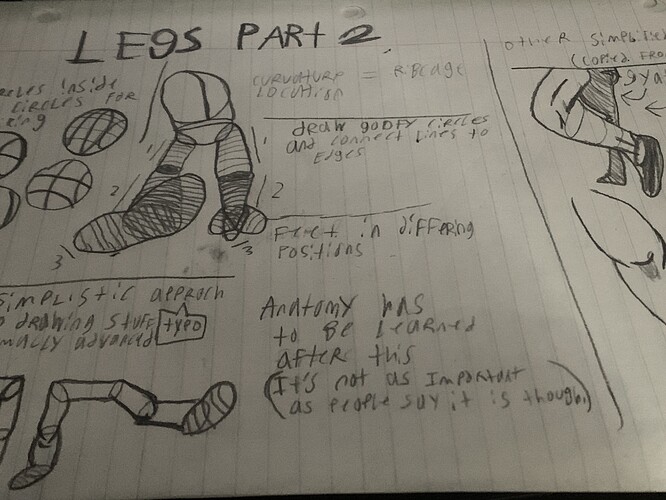 LEGS PART 2
CIRCLES FOR
CURVATURE = RIBCAGE
LOCATION
draw goofy circles
and connect lines to
Edges
1
1
2
2
3
3
FEET in differing
Positions
SIMPListic approch
drawing stuff
typo
advanced
Anatomy has
to BE Learned
after this
(It's not as Important
as people say it is though)
other simplified
(copied from